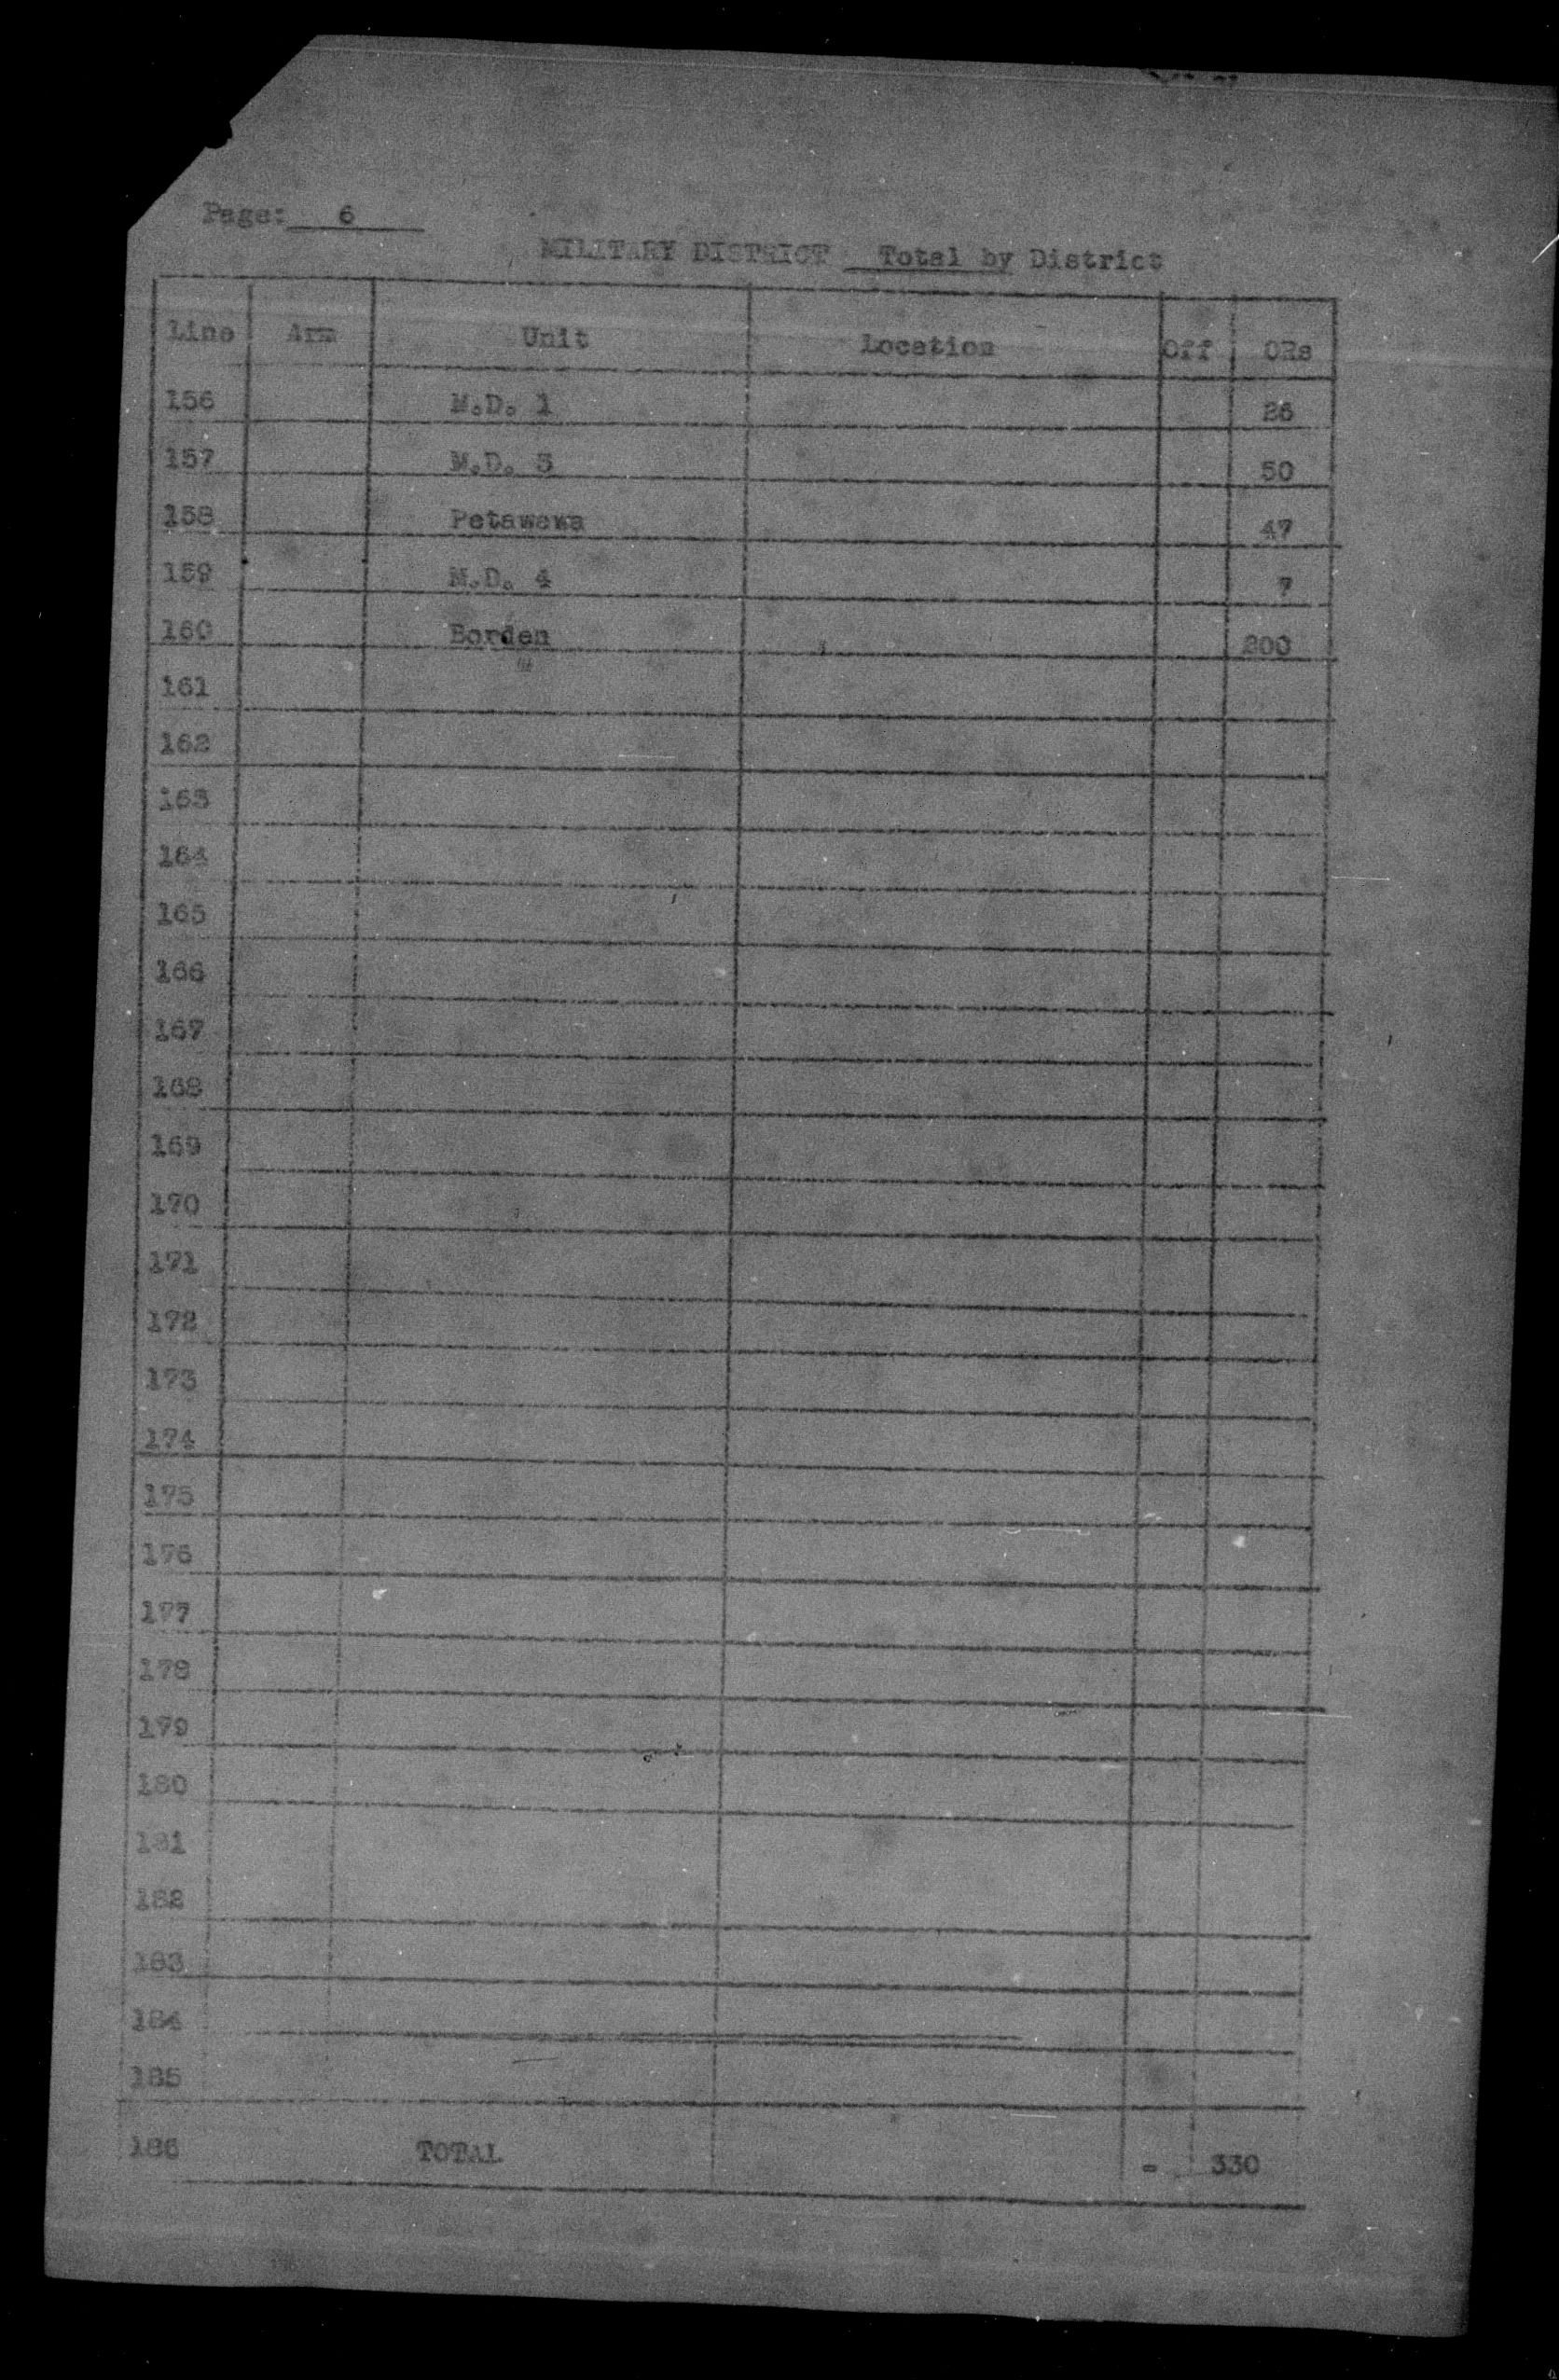 Page: 6
MILITARY DISTRICT Total by District
Line Arm Unit Location Off ORs
156 M.D. 1 26
157 M.D. 3 50
158 Petawawa 47
159 M.D. 4 7
160 Borden 200
161
162
163
164
165
166
167
168
169
170
171
172
173
174
175
176
177
178
179
180
181
182
183
184
185
186 TOTAL - 330